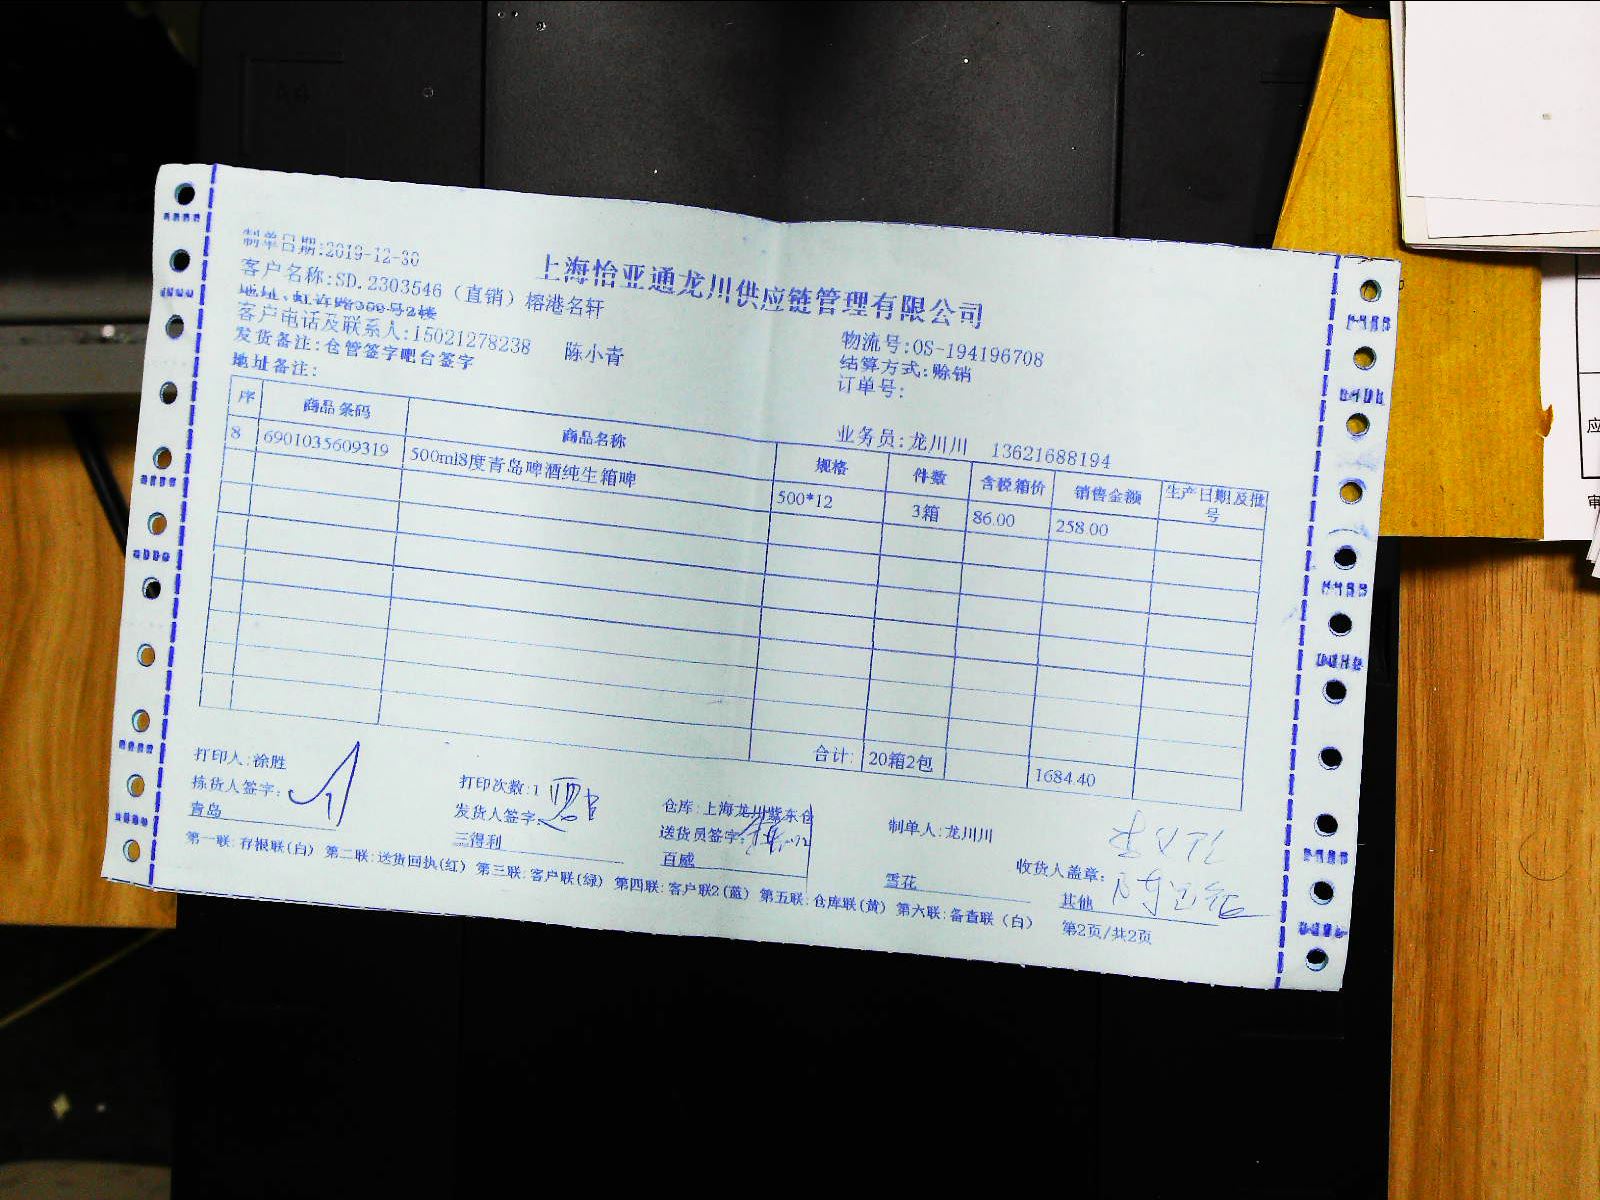 制单日期:2019-12-30
上海怡亚通龙川供应链管理有限公司
客户名称:SD.2303546（直销）榕港名轩
地址:虹许路369号2楼
客户电话及联系人:15021278238 陈小青
物流号:OS-194196708
发货备注:仓管签字吧台签字
结算方式:赊销
地址备注:
订单号:
业务员:龙川川 13621688194
序 商品条码 商品名称 规格 件数 含税箱价 销售金额 生产日期及批号
8 6901035609319 500ml8度青岛啤酒纯生箱啤 500*12 3箱 86.00 258.00
合计: 20箱2包 1684.40
打印人:徐胜 打印次数:1 仓库:上海龙川紫东仓 制单人:龙川川
拣货人签字: 发货人签字: 送货员签字: 收货人盖章:
青岛 三得利 百威 雪花 其他
第一联:存根联(白) 第二联:送货回执(红) 第三联:客户联(绿) 第四联:客户联2(蓝) 第五联:仓库联(黄) 第六联:备查联（白） 第2页/共2页
应
审